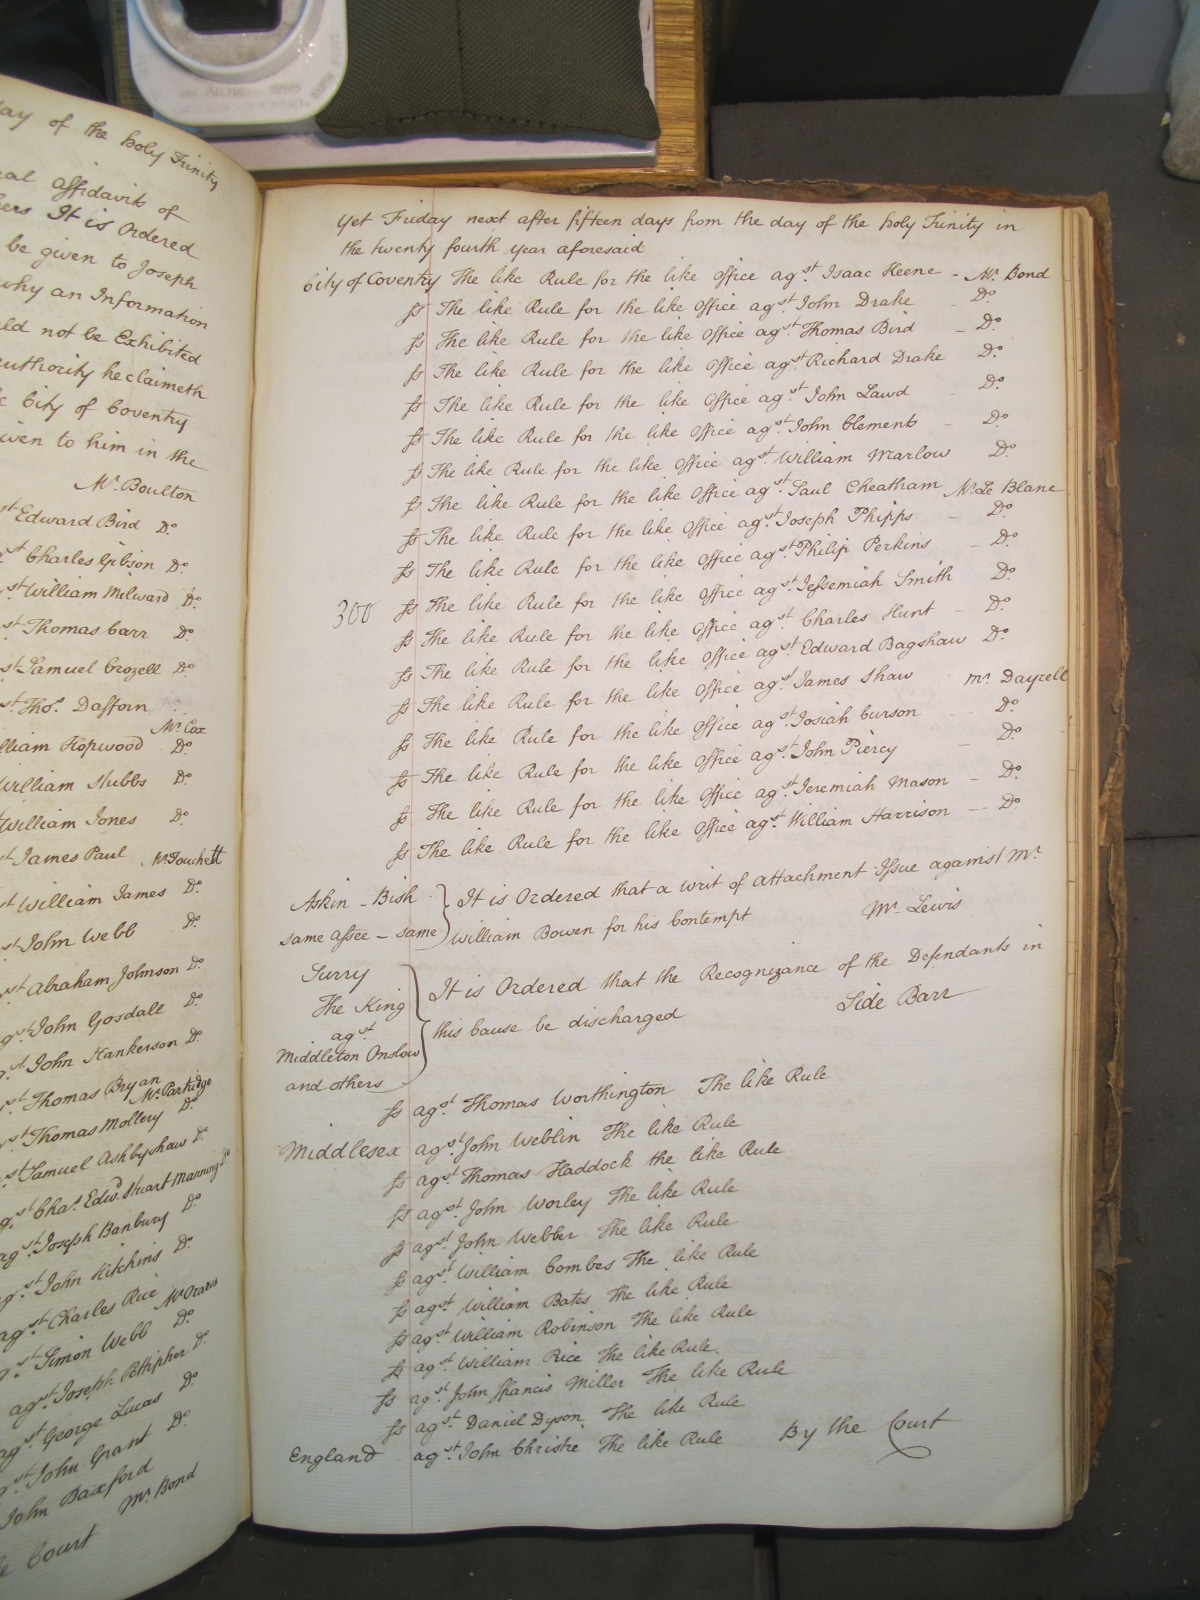 day of the holy Trinity
affidavits of
It is Ordered
be given to Joseph
why an Information
not be Exhibited
authority he claimeth
City of Coventry
given to him in the
Mr. Boulton
st Edward Bird Do.
st Charles Gibson Do.
st William Milward Do.
st Thomas Carr Do.
st Samuel Crozell Do.
st Thos. Dafforn
Mr. Cox
William Hopwood Do.
William Stubbs Do.
William Jones Do.
st James Paul Mr. Touchett
st William James Do.
st John Webb Do.
st Abraham Johnson Do.
st John Gosdale Do.
st John Hankerson Do.
st Thomas Bryan
Mr. Partridge
st Thomas Mollery Do.
st Samuel Ashbyshaw Do.
st Chas. Edwd. Stuart Manning Do.
agst Joseph Banbury Do.
st John Hitchins Do.
agst Charles Rice
st Simon Webb Do.
agst Joseph Pettipher Do.
agst George Lucas Do.
st John Grant Do.
John Baxford
Mr. Bond
Court
Yet Friday next after fifteen days from the day of the holy Trinity in
the twenty fourth year aforesaid
City of Coventry The like Rule for the like Office agst. Isaac Keene - Mr. Bond
ss The like Rule for the like Office agst. John Drake - Do.
ss The like Rule for the like Office agst. Thomas Bird - Do.
ss The like Rule for the like Office agst. Richard Drake Do.
ss The like Rule for the like Office agst. John Lawd - Do.
ss The like Rule for the like Office agst. John Clements - Do.
ss The like Rule for the like Office agst. William Marlow Do.
ss The like Rule for the like Office agst. Saul Cheatham Mr. Le Blanc
ss The like Rule for the like Office agst. Joseph Phipps - Do.
ss The like Rule for the like Office agst. Philip Perkins - Do.
300 ss The like Rule for the like Office agst. Jessemiah Smith Do.
ss The like Rule for the like Office agst. Charles Hunt - Do.
ss The like Rule for the like Office agst. Edward Bagshaw Do.
ss The like Rule for the like Office agst. James Shaw Mr. Dayrell
ss The like Rule for the like Office agst. Josiah Curson - Do.
ss The like Rule for the like Office agst. John Piercy - Do.
ss The like Rule for the like Office agst. Jeremiah Mason - Do.
ss The like Rule for the like Office agst. William Harrison - Do.
Askin - Bish } It is Ordered that a writ of attachment Issue against Mr.
same assee - same } William Bowen for his Contempt Mr. Lewis
Surry
The King } It is Ordered that the Recognizance of the Defendants in
agst. } this Cause be discharged Side Barr
Middleton Onslow
and others
ss agst. Thomas Worthington The like Rule
Middlesex agst. John Weblin The like Rule
ss agst. Thomas Haddock the like Rule
ss agst. John Worley The like Rule
ss agst. John Webber The like Rule
ss agst. William Combes The like Rule
ss agst. William Bates The like Rule
ss agst. William Robinson The like Rule
ss agst. William Rice The like Rule.
ss agst. John ffrancis Miller The like Rule
ss agst. Daniel Dyson The like Rule
England agst. John Christie The like Rule By the Court